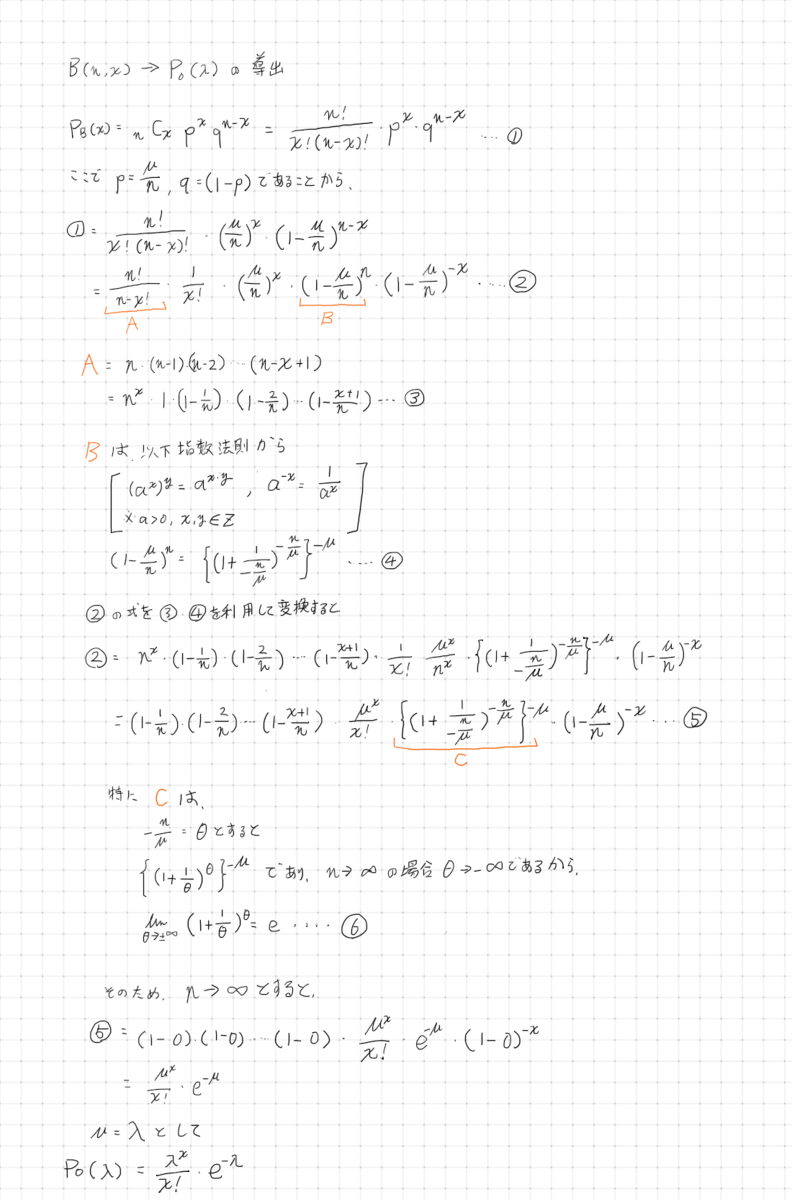 B(n,x) → Po(λ) の導出
P_B(x) = nCx p^x q^{n-x} = n!/(x!(n-x)!) · p^x · q^{n-x} ····①
ここで p = μ/n, q = (1-p) であることから、
① = n!/(x!(n-x)!) · (μ/n)^x · (1-μ/n)^{n-x}
= n!/(n-x!) · 1/x! · (μ/n)^x · (1-μ/n)^n · (1-μ/n)^{-x} ····②
A B
A = n·(n-1)·(n-2)···(n-x+1)
= n^x · 1·(1-1/n)·(1-2/n)···(1-(x+1)/n)···③
B は、以下指数法則から
[(a^x)^y = a^{x·y}, a^{-x} = 1/a^x
※ a>0, x,y∈Z]
(1-μ/n)^n = {(1+1/(-n/μ))^{-n/μ}}^{-μ} ····④
②の式を③·④を利用して変換すると
② = n^x·(1-1/n)·(1-2/n)···(1-(x+1)/n)·1/x! μ^x/n^x·{(1+1/(-n/μ))^{-n/μ}}^{-μ}·(1-μ/n)^{-x}
= (1-1/n)·(1-2/n)···(1-(x+1)/n)·μ^x/x!·{(1+1/(-n/μ))^{-n/μ}}^{-μ}·(1-μ/n)^{-x} ····⑤
C
特に C は、
-n/μ = θ とすると
{(1+1/θ)^θ}^{-μ} であり、n→∞ の場合 θ→-∞ であるから、
lim θ→±∞ (1+1/θ)^θ = e ····⑥
そのため、n→∞ とすると、
⑤ = (1-0)·(1-0)···(1-0)·μ^x/x!·e^{-μ}·(1-0)^{-x}
= μ^x/x!·e^{-μ}
μ = λ として
Po(λ) = λ^x/x!·e^{-λ}